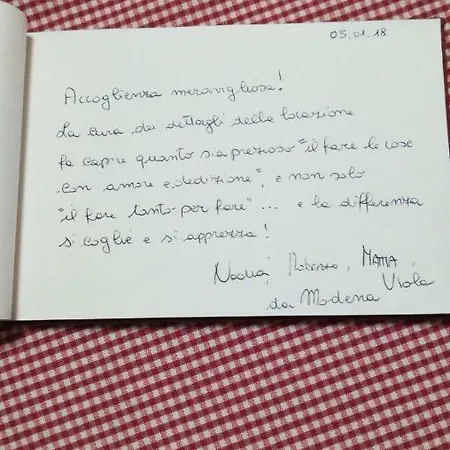 05.01.18
Accoglienza meravigliosa!
La cura dei dettagli della locazione
fa capire quanto sia prezioso "il fare le cose
con amore e dedizione", e non solo
"il fare tanto per fare"... e la differenza
si coglie e si apprezza!
Nadia, Roberto, MATTIA,
Viola
da Modena